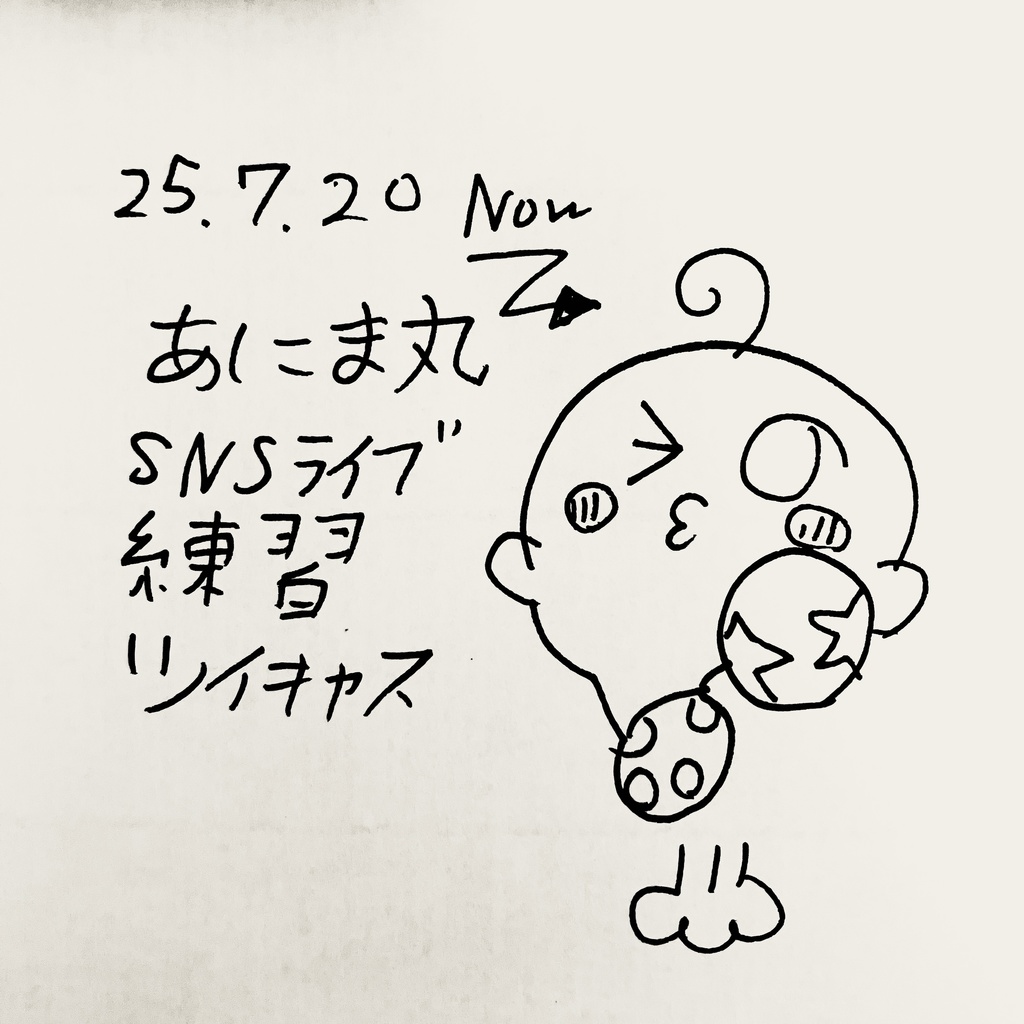 25.7.20 Now
あにま丸
SNSライブ
練習
ツイキャス